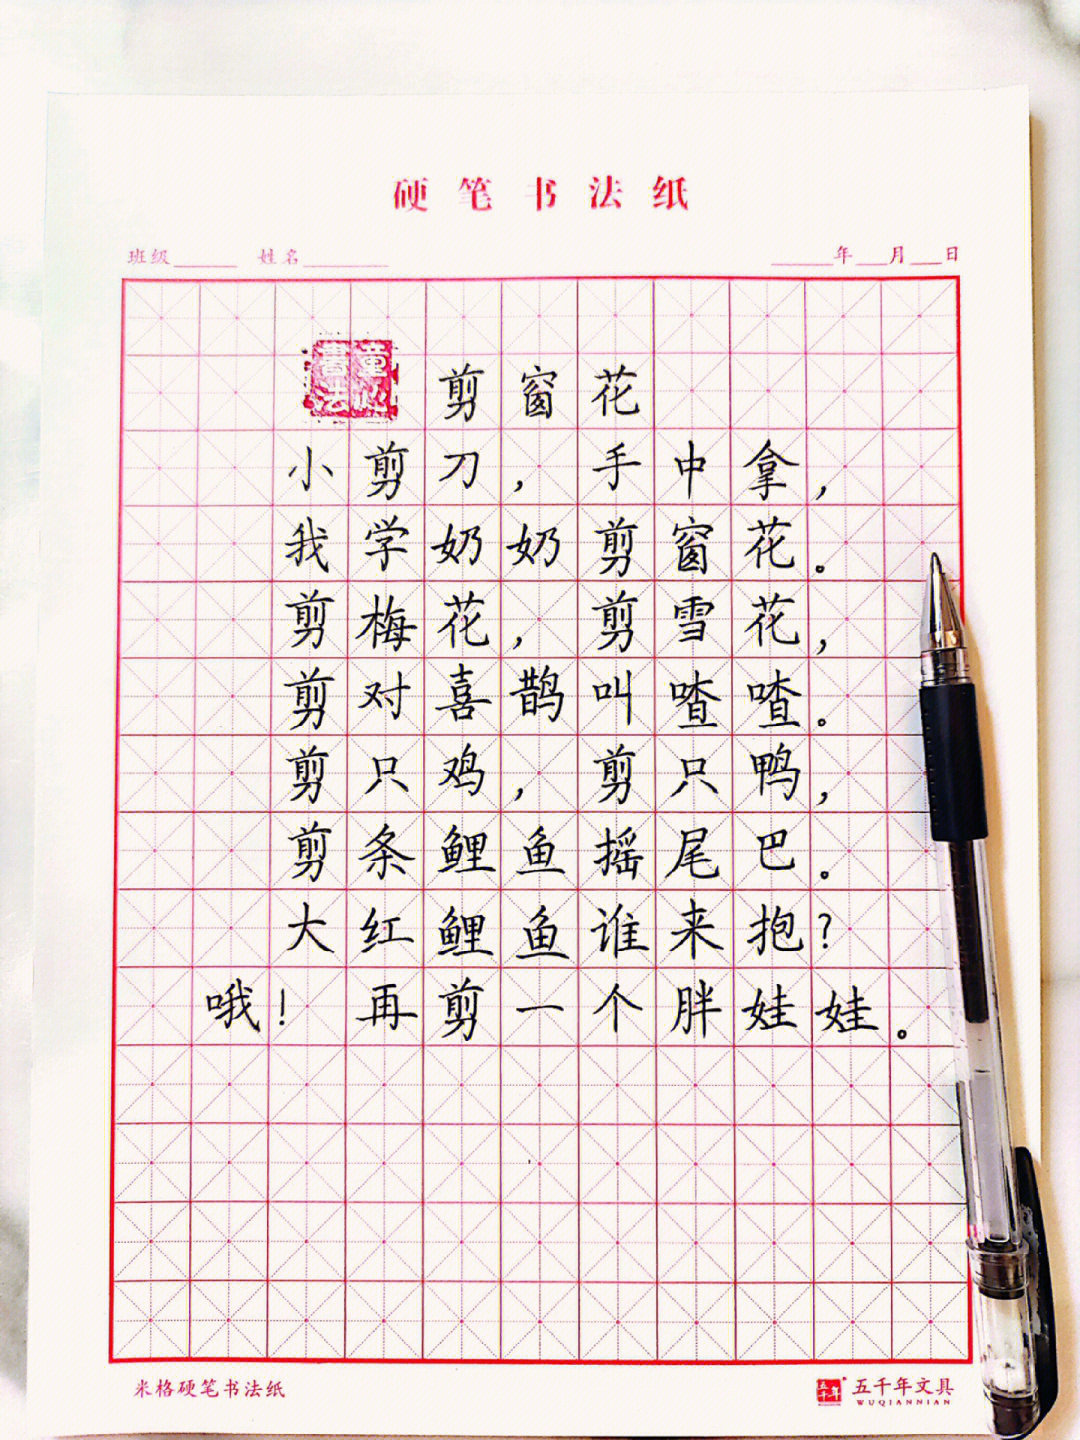 硬笔书法纸
班级 姓名 年 月 日
剪窗花
小剪刀，手中拿，
我学奶奶剪窗花。
剪梅花，剪雪花，
剪对喜鹊叫喳喳。
剪只鸡，剪只鸭，
剪条鲤鱼摇尾巴。
大红鲤鱼谁来抱？
哦！再剪一个胖娃娃。
米格硬笔书法纸
五千年 五千年文具
WUQIANNIAN